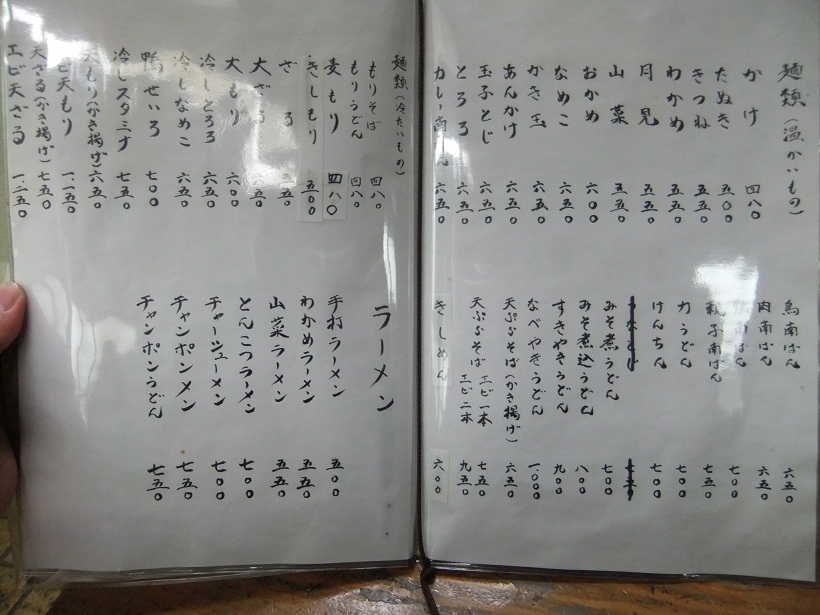 麺類(温かいもの)
かけ 四八〇
たぬき 五〇〇
きつね 五五〇
わかめ 五五〇
月見 五五〇
山菜 五五〇
おかめ 六〇〇
なめこ 六五〇
かき玉 六五〇
あんかけ 六五〇
玉子とじ 六五〇
とろろ 五五〇
カレー南ばん 六五〇
鳥南ばん 六五〇
肉南ばん 六五〇
南ばん 七〇〇
親子南ばん 七五〇
力うどん 七〇〇
けんちん 七〇〇
みそ煮うどん 七〇〇
みそ煮込うどん 八〇〇
すきやきうどん 九〇〇
なべやきうどん 一、〇〇〇
天ぷらそば(かき揚げ) 六五〇
天ぷらそば エビ一本 七五〇
エビ二本 九五〇
きしめん 六〇〇
麺類(冷たいもの)
もりそば 四八〇
もりうどん 四八〇
麦もり 四八〇
きしもり 五〇〇
ざる 五五〇
大ざる 五〇
大もり 六〇〇
冷しとろろ 六五〇
冷しなめこ 六五〇
鴨せいろ 七〇〇
冷しスタミナ 七五〇
天もり(かき揚げ) 六五〇
エビ天もり 一、一五〇
天ざる(かき揚げ) 七五〇
エビ天ざる 一、二五〇
ラーメン
手打ラーメン 五〇〇
わかめラーメン 五五〇
山菜ラーメン 五五〇
とんこつラーメン 七〇〇
チャーシューメン 七〇〇
チャンポンメン 七五〇
チャンポンうどん 七五〇